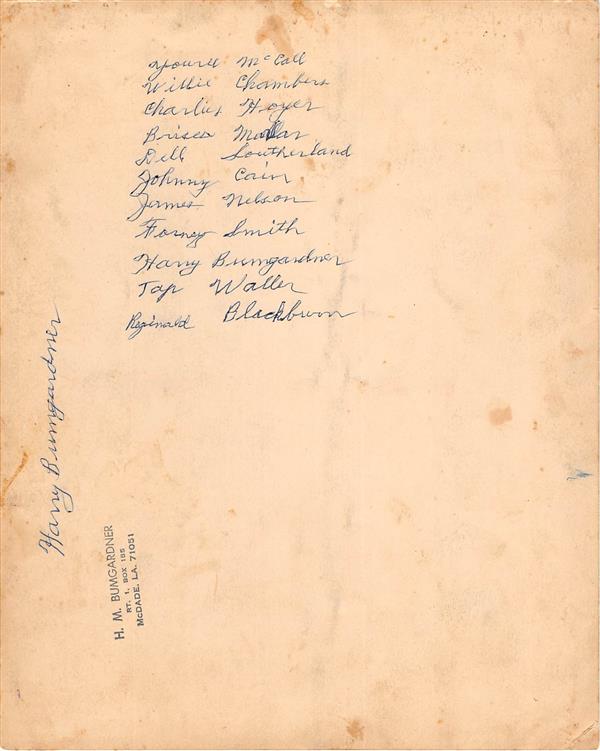 Youree McCall
Willie Chambers
Charlies Hoyer
Dell Southerland
Johnny Cain
James Nelson
Forney Smith
Harry Bumgardner
Tap Waller
Reginald Blackburn
Harry Bumgardner
H. M. BUMGARDNER
RT. 1, BOX 185
McDADE, LA. 71051